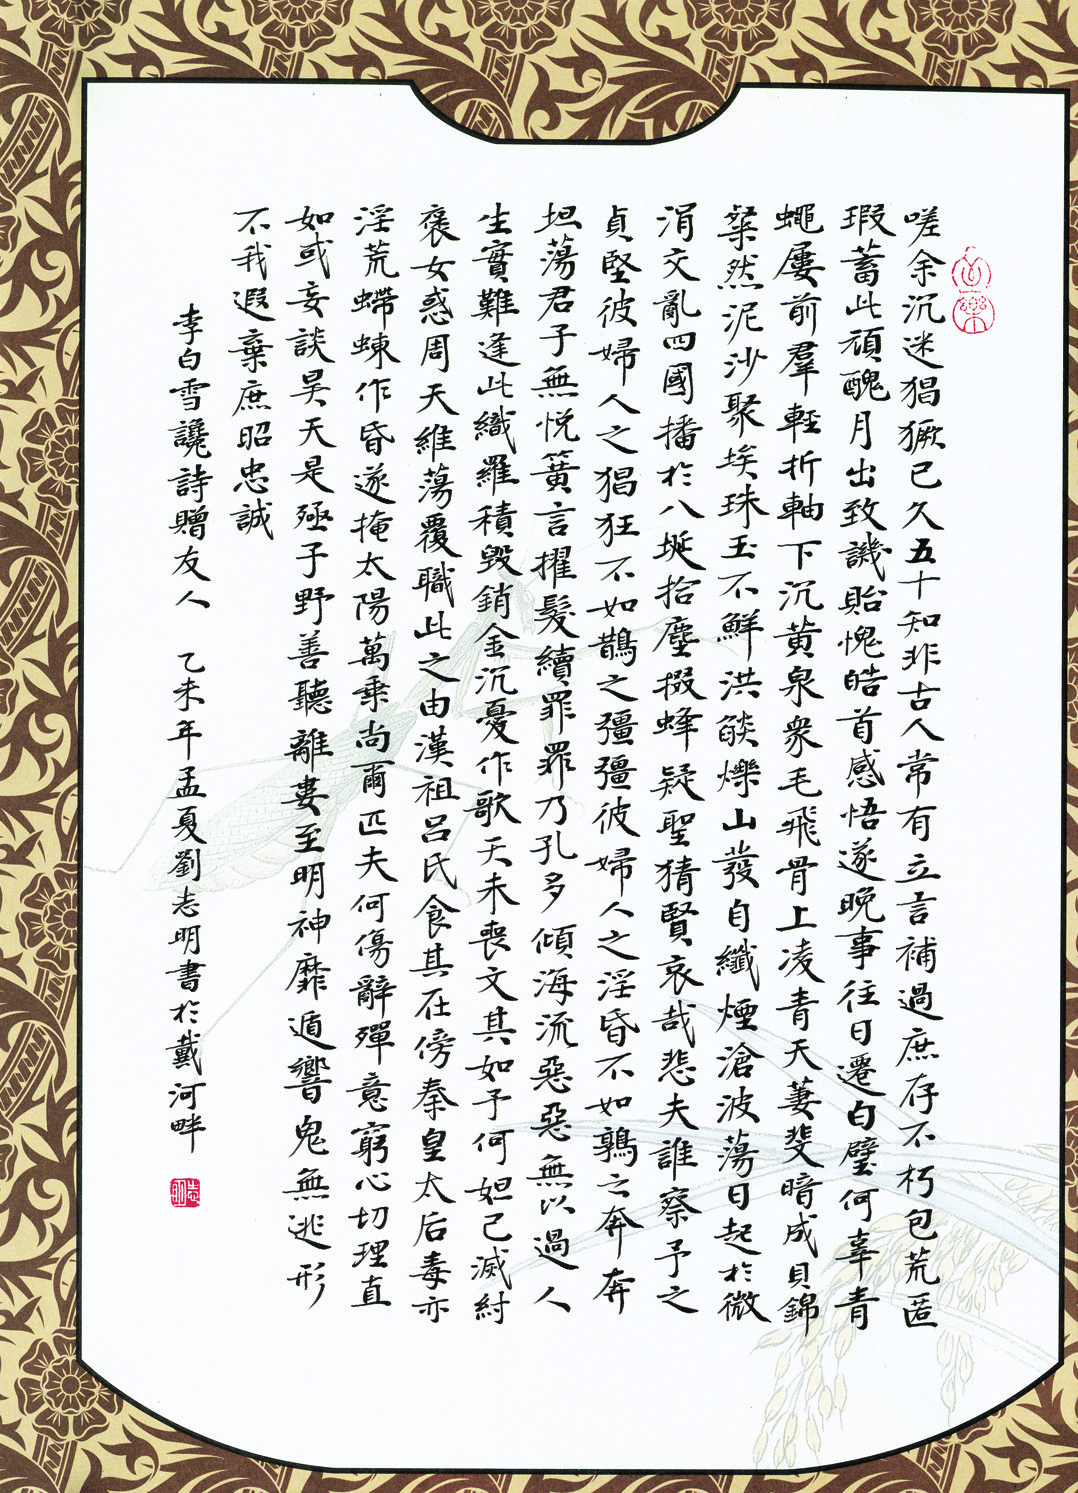 嗟余沉迷猖獗已久五十知非古人常有立言補過庶存不朽包荒匿
瑕蓄此頑醜月出致譏貽愧皓首感悟遂晚事往日遷白璧何辜青
蠅屢前羣輕折軸下沉黃泉衆毛飛骨上凌青天萋斐暗成貝錦
粲然泥沙聚埃珠玉不鮮洪燄爍山發自纖煙滄波蕩日起於微
涓交亂四國播於八埏拾塵掇蜂疑聖猜賢哀哉悲夫誰察予之
貞堅彼婦人之猖狂不如鵲之彊彊彼婦人之淫昏不如鶉之奔奔
坦蕩君子無悅簧言擢髮續罪罪乃孔多傾海流惡惡無以過人
生實難逢此織羅積毀銷金沉憂作歌天未喪文其如予何妲己滅紂
褒女惑周天維蕩覆職此之由漢祖呂氏食其在傍秦皇太后毒亦
淫荒螮蝀作昏遂掩太陽萬乘尚爾匹夫何傷辭殫意窮心切理直
如或妄談昊天是殛子野善聽離婁至明神靡遁響鬼無逃形
不我遐棄庶昭忠誠
李白雪讒詩贈友人 乙未年孟夏劉志明書於戴河畔